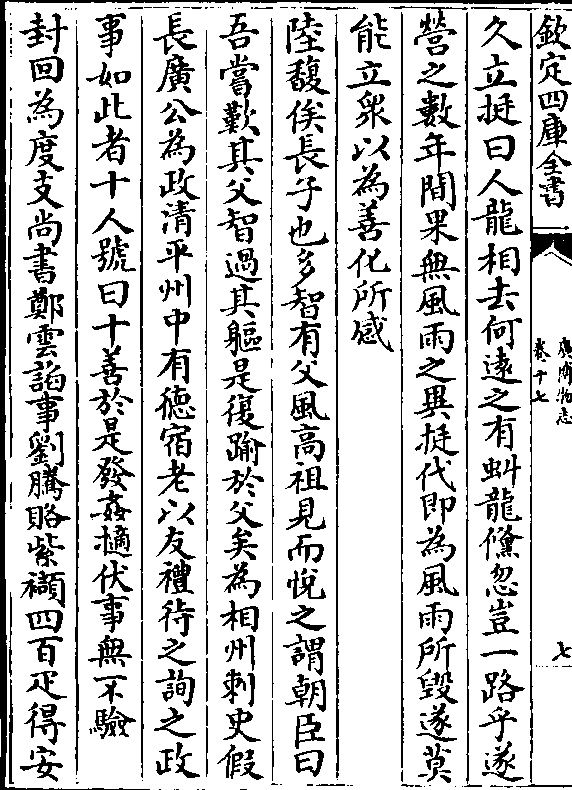 欽定四庫全書
廣博物志
卷十七
七
久立挺曰人龍相去何遠之有虯龍儵忽豈一路乎遂
營之數年間果無風雨之異挺代即為風雨所毀遂莫
能立衆以為善化所感
陸馥俟長子也多智有父風高祖見而悅之謂朝臣曰
吾嘗歎其父智過其軀是復踰於父矣為相州刺史假
長廣公為政清平州中有徳宿老以友禮待之詢之政
事如此者十人號曰十善於是發姦擿伏事無不驗
封回為度支尚書鄭雲諂事劉騰賂紫纈四百疋得安